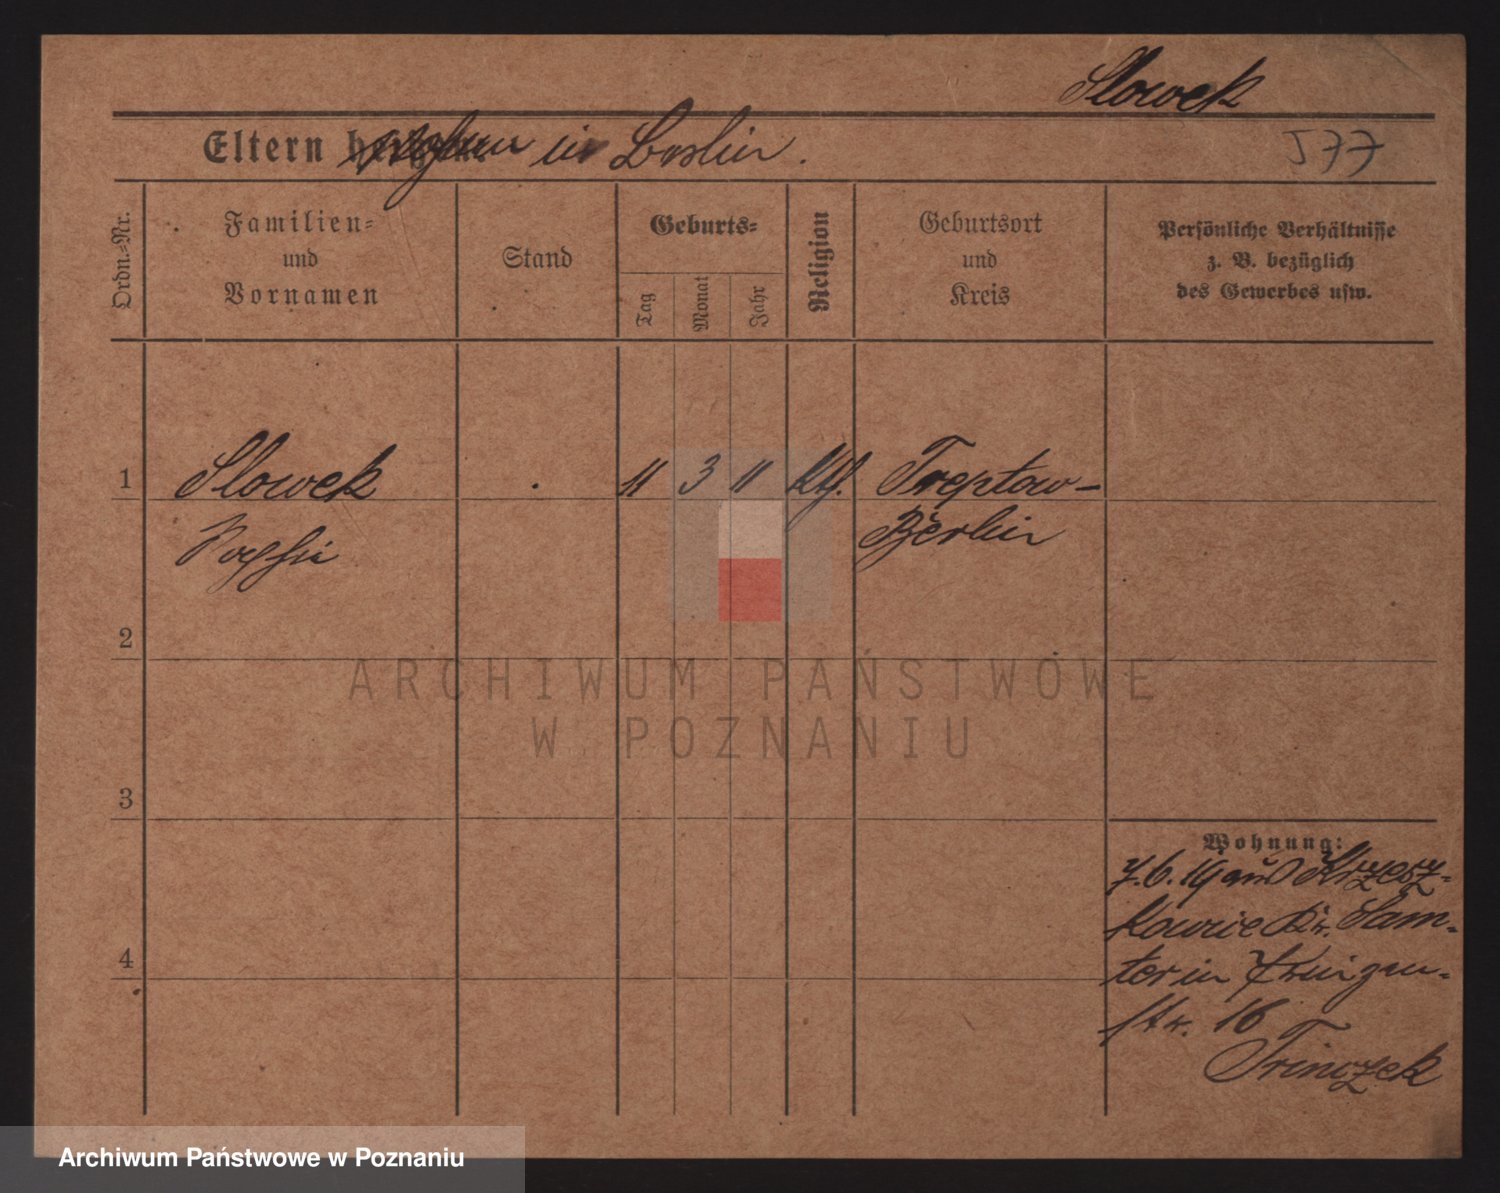 Slowek
Eltern wohnen in Berlin.
577
Ordn.-Nr.
Familien-
und
Vornamen
Stand
Geburts-
Tag
Monat
Jahr
Religion
Geburtsort
und
Kreis
Persönliche Verhältnisse
z. B. bezüglich
des Gewerbes usw.
1
Slowek
11
3
11
Kth.
Treptow-
Berlin
2
3
4
Wohnung:
7.6.19 aus Krzesz-
kowie Kr. Sam-
ter in
str. 16
Trinczek
ARCHIWUM PAŃSTWOWE
W POZNANIU
Archiwum Państwowe w Poznaniu